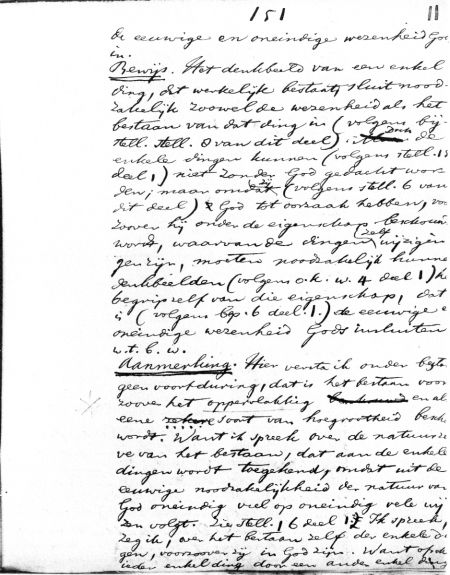 151
11
de eeuwige en oneindige wezenheid Go
in.
Bewijs. Het denkbeeld van een enkel
ding, dat werkelijk bestaat, sluit nood-
zakelijk zoowel de wezenheid als het
bestaan van dat ding in (volgens bij-
stell. stell. 8 van dit deel). Doch de
enkele dingen kunnen (volgens stell. 15
deel 1) niet zonder God gedacht wor-
den; maar omdat zij (volgens stell. 6 van
dit deel) God tot oorzaak hebben, voo
zoover hij onder de eigenschap beschouw
wordt, waarvan de dingen zelf wijzigin
gen zijn, moeten noodzakelijk hunne
denkbeelden (volgens o.k.w. 4 deel 1) h
begrip zelf van die eigenschap, dat
is (volgens bep. 6 deel 1.) de eeuwige e
oneindige wezenheid Gods insluiten
w.t.b.w.
Aanmerking. Hier versta ik onder besta
geen voortduring, dat is het bestaan voor
zoover het oppervlakkig en al
eene zekere soort van hoegrootheid besch
wordt. Want ik spreek over de natuur ze
ve van het bestaan, dat aan de enkele
dingen wordt toegekend, omdat uit de
eeuwige noodzakelijkheid der natuur van
God oneindig veel op oneindig vele wij
zen volgt. Zie stell. 16 deel 1. Ik spreek,
zeg ik, over het bestaan zelf der enkele di
gen, voorzoover zij in God zijn. Want
ieder enkel ding door een ander enkel ding